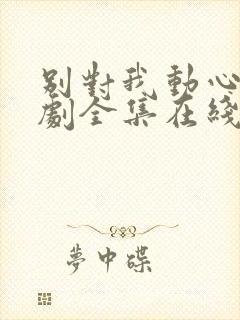 別對我動心
劇全集在綫
夢中碟